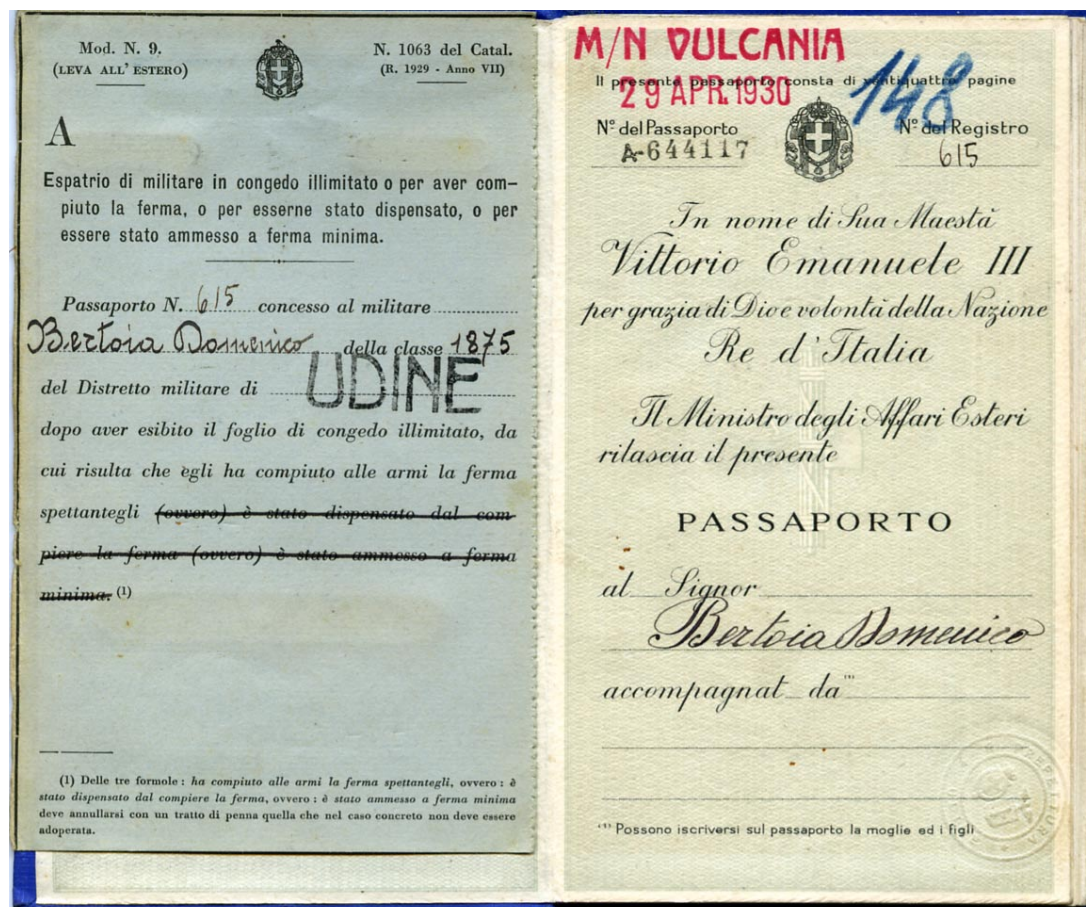 Mod. N. 9.
(LEVA ALL' ESTERO)
N. 1063 del Catal.
(R. 1929 - Anno VII)
A
Espatrio di militare in congedo illimitato o per aver com-
piuto la ferma, o per esserne stato dispensato, o per
essere stato ammesso a ferma minima.
Passaporto N. 615 concesso al militare
Bertoia Domenico della classe 1875
del Distretto militare di UDINE
dopo aver esibito il foglio di congedo illimitato, da
cui risulta che egli ha compiuto alle armi la ferma
spettantegli (ovvero) è stato dispensato dal com-
piere la ferma (ovvero) è stato ammesso a ferma
minima. (1)
(1) Delle tre formole : ha compiuto alle armi la ferma spettantegli, ovvero : è
stato dispensato dal compiere la ferma, ovvero : è stato ammesso a ferma minima
deve annullarsi con un tratto di penna quella che nel caso concreto non deve essere
adoperata.
M/N VULCANIA
Il presente passaporto consta di ventiquattro pagine
29 APR. 1930
148
N° del Passaporto
A-644117
N° del Registro
615
In nome di Sua Maestà
Vittorio Emanuele III
per grazia di Dio e volontà della Nazione
Re d'Italia
Il Ministro degli Affari Esteri
rilascia il presente
PASSAPORTO
al Signor
Bertoia Domenico
accompagnat da (1)
(1) Possono iscriversi sul passaporto la moglie ed i figli